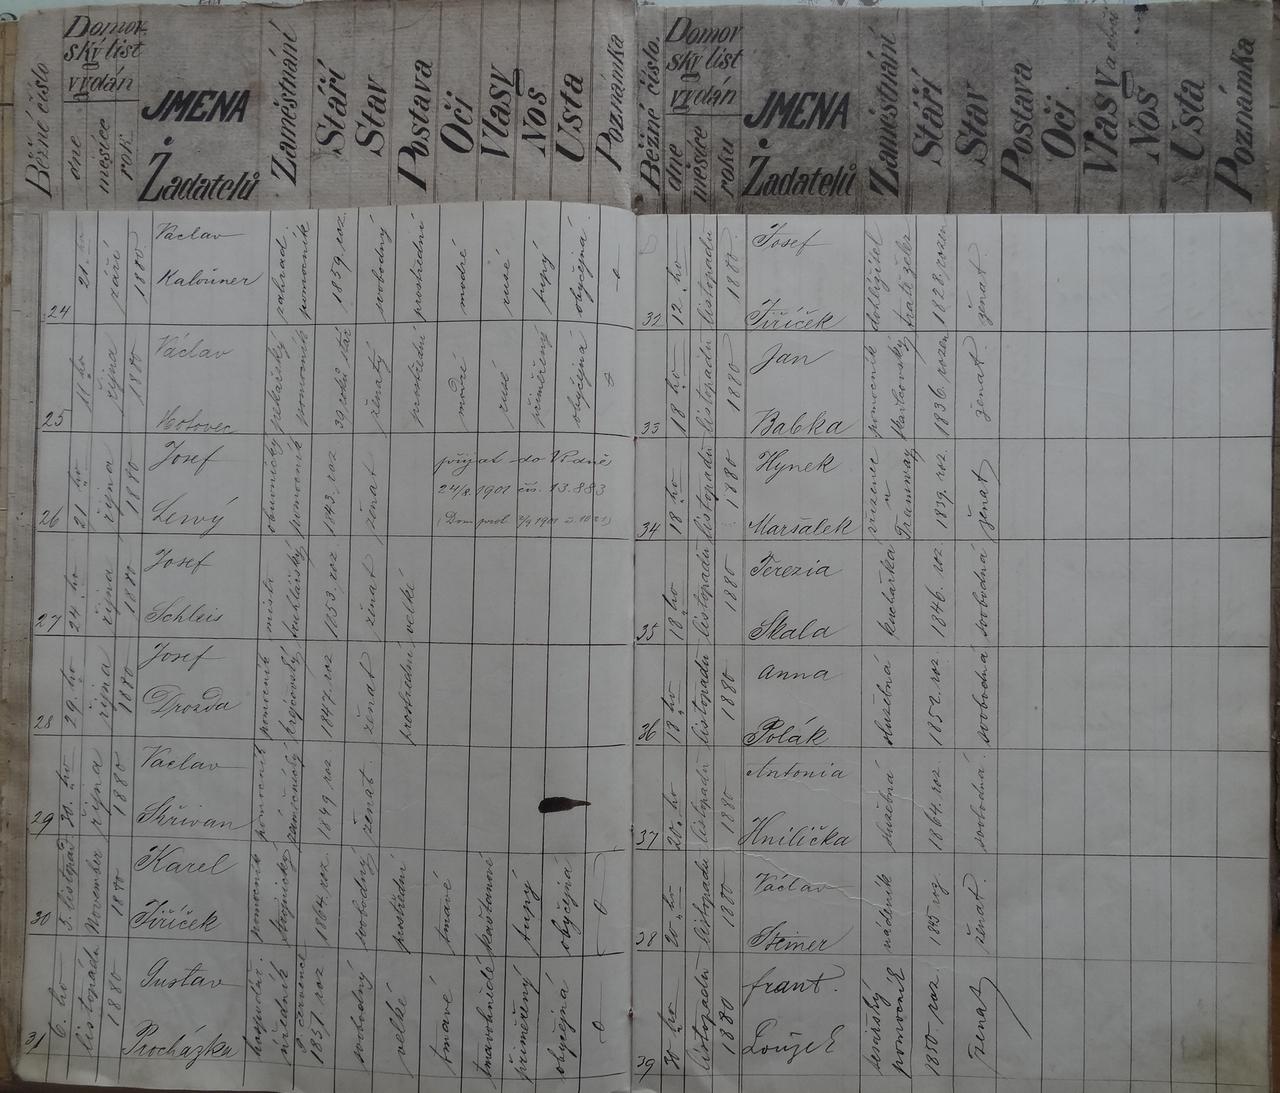 Běžné číslo
Domovský list vydán
dne
měsíce
rok
JMENA Žadatelů
Zaměstnání
Stáří
Stav
Postava
Oči
Vlasy
Nos
Usta
Poznámka
24 21. ho září 1880 Vaclav Kalouner zahrad. pomocník 1859. roz. svobodný prostřední modré rusé tupý obyčejná
25 11 ho října 1880 Václav Hotovec pekařský pomocník 39 roků stár ženatý prostřední modré rusé přiměřený obyčejná
26 21 ho října 1880 Josef Lewý obuvnický pomocník 1843. roz ženat
přijat do Vídně
24/8. 1901 čís. 13.883
27 24. ho října 1880 Josef Schleis mistr truhlářský 1853. roz. ženat velké
28 29. ho října 1880 Josef Drozda pomocník 1847. roz ženat prostřední
29 30. ho října 1880 Vaclav Skřivan pomocník zámečnický 1849 roz ženat.
30 5. listopad November 1880 Karel Jiříček pomocník strojnický 1864. roz. svobodný prostřední tmavé kaštanové tupý obyčejná
31 6. ho listopadu 1880 Gustav Procházka hospodář. úředník 8 července 1857. roz svobodný velké tmavé tmavohnědé přiměřený obyčejná
Běžné číslo.
Domovský list vydán
dne
měsíce
roku
JMENA Žadatelů
Zaměstnání
Stáří
Stav
Postava
Oči
Vlasy
Nos
Usta
Poznámka
12. ho listopadu 1880. Josef Jiříček dohližitel 1828. rozen ženat.
33 18 ho listopadu 1880 Jan Babka pomocník 1836. rozen ženat.
34 18 ho listopadu 1880 Hynek Maršálek zřízenec u Tramway 1839. roz. ženat
35 18 ho listopadu 1880 Terezia Skala kuchařka 1846. roz. svobodná
36 18 ho listopadu 1880 Anna Polák služebná 1852. roz. svobodná
37 20. ho listopadu 1880 Antonia Hnilička služebná 1864. roz. svobodná.
38 20 ho listopadu 1880 Václav Steiner nádeník ženat.
39 30 ho listopadu 1880 frant. Loužek pomocník 1850. roz ženat